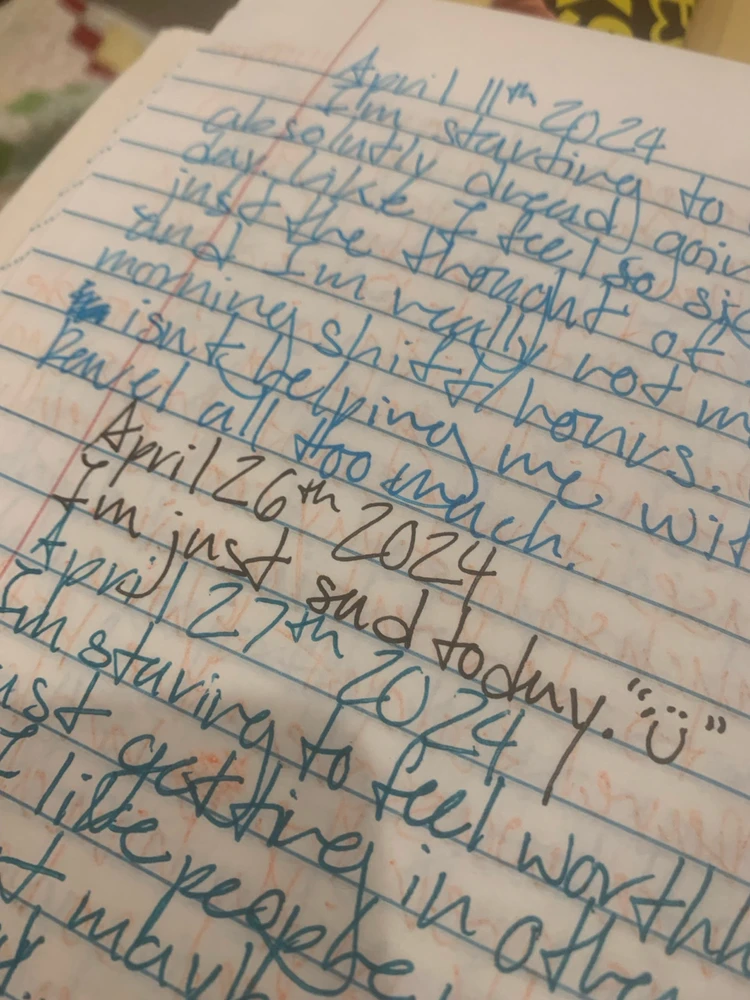 April 11th 2024
I'm starting to
absolutly dread goin
day. Like I feel so sic
just the thought of
And I'm really not m
morning shift/hours.
isn't helping me wit
all too much.
April 26th 2024
I'm just sad today. "ü"
April 27th 2024
I'm staring to feel worthl
ust getting in other
I like people
t mayb